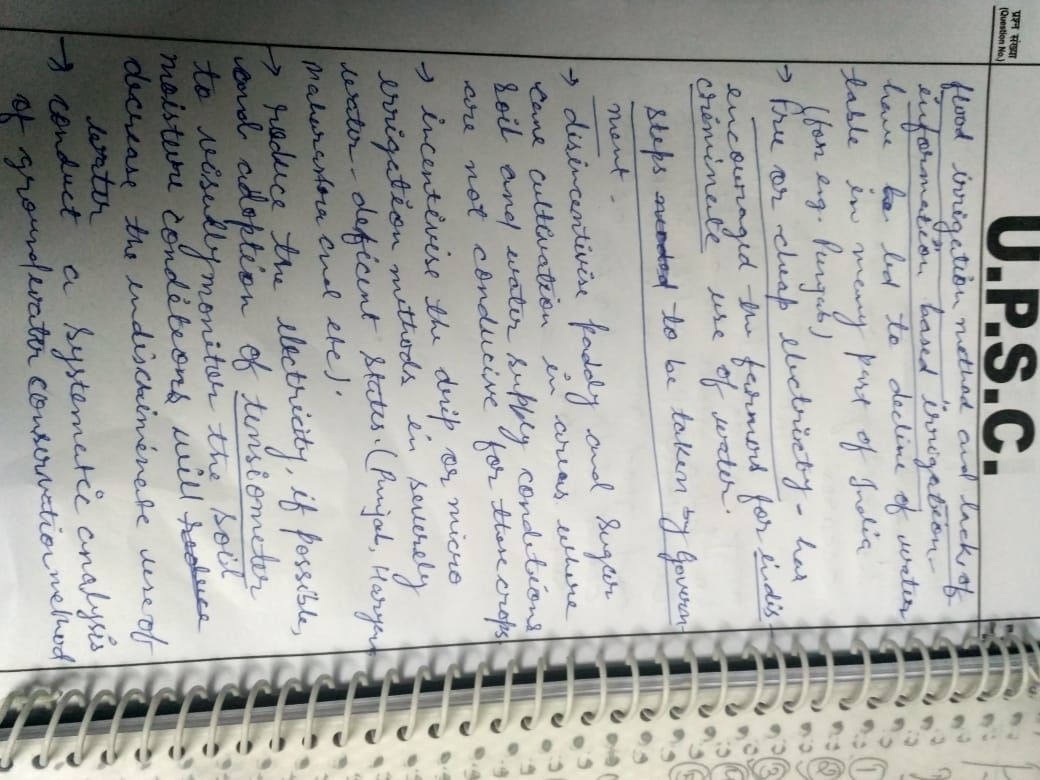 U.P.S.C.
प्रश्न संख्या
(Question No.)
flood irrigation method and lack of
information based irrigation-
have led to decline of water
table in many part of India
(for eg. Punjab)
→ Free or cheap electricity - has
encouraged the farmers for indis-
criminate use of water.
Steps needed to be taken by Govern-
ment -
→ disincentivise paddy and sugar
cane cultivation in areas where
soil and water supply conditions
are not conducive for these crops
→ incentivise the drip or micro
irrigation methods in severely
water-deficient states. (Punjab, Haryana
Maharastra and etc).
→ reduce the electricity, if possible,
and adoption of tensiometer
to visually monitor the soil
moisture conditions will reduce
decrease the indiscriminate use of
water
→ conduct a systematic analysis
of groundwater conservation method
1
2
3